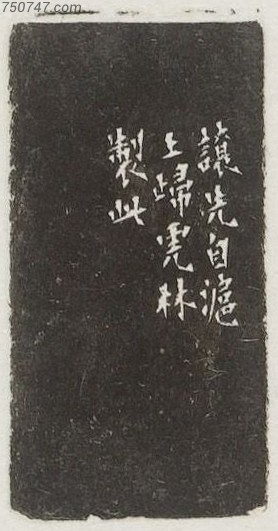 讓先自滬
上歸虎林
製此
750747.com